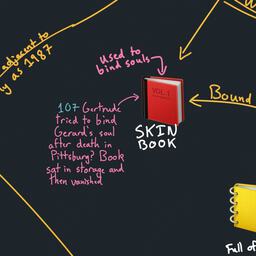 adjacent to
y as 1987
used to
bind souls
VOL. I
Bound
107 Gertrude
tried to bind
Gerard's soul
after death in
Pittsburg? Book
sat in storage and
then vanished
SKIN
BOOK
Full of